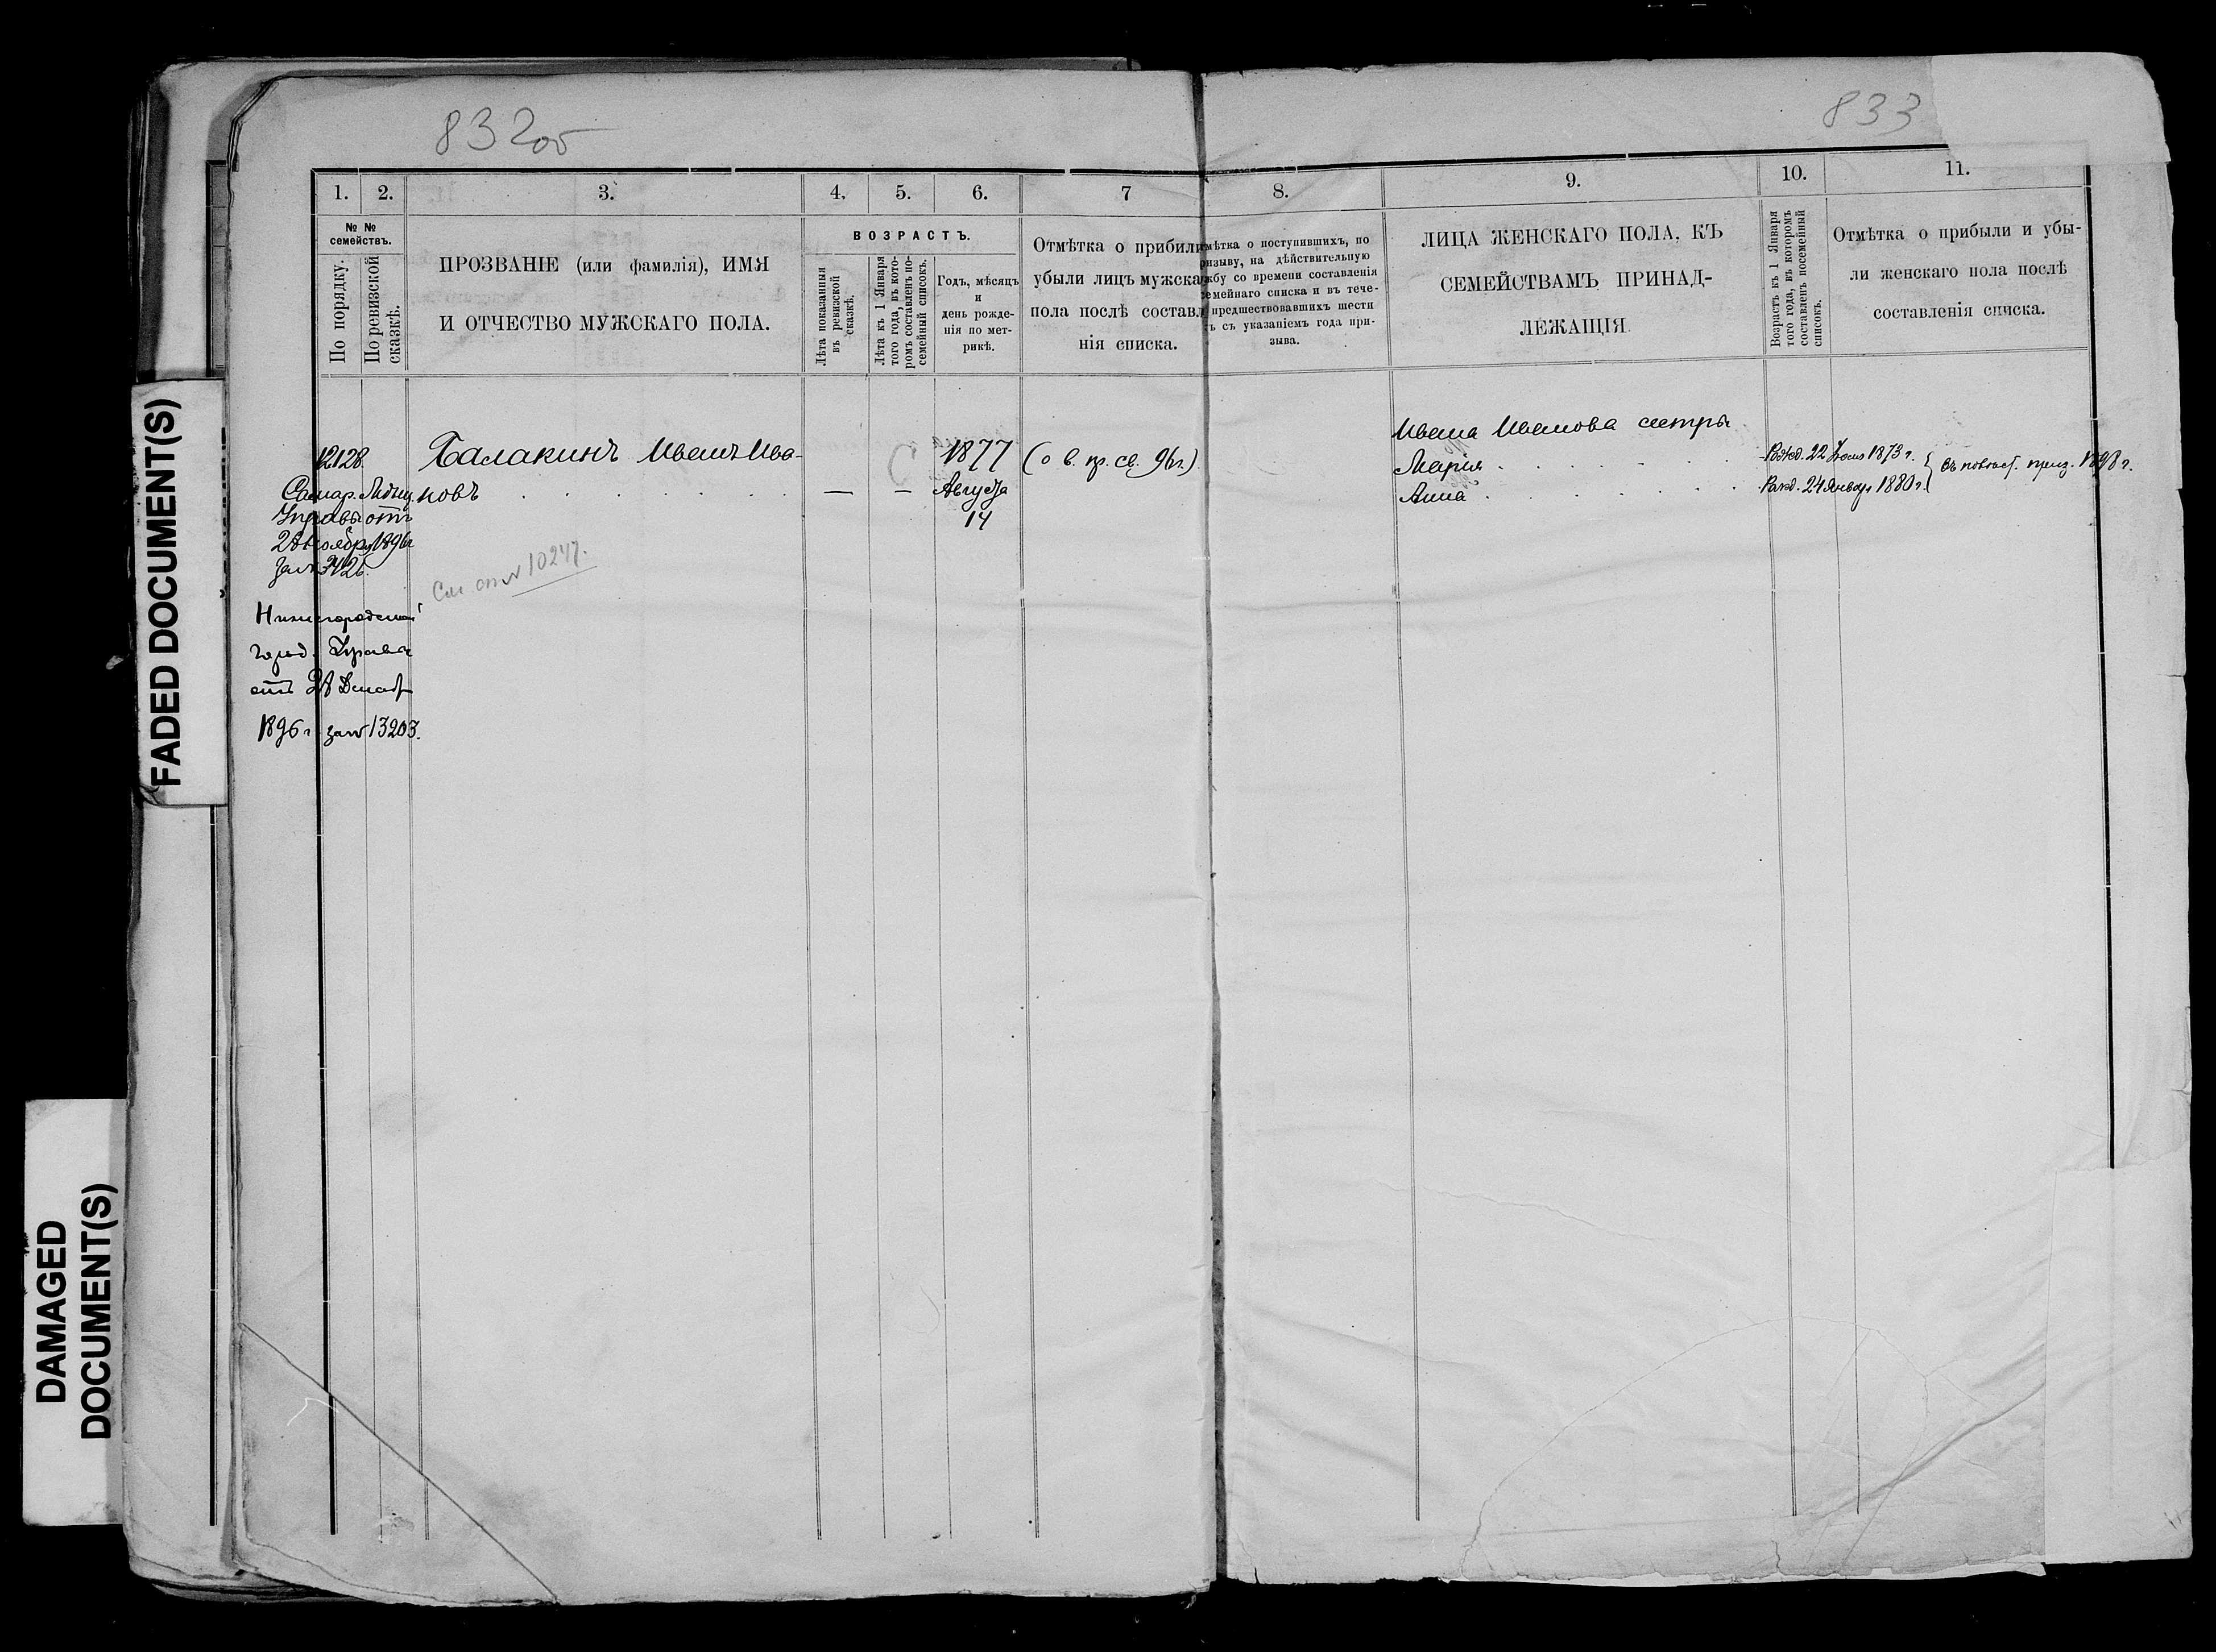 832об
833
1. 2. 3. 4. 5. 6. 7 8. 9. 10. 11.
№ №
семействъ.
По порядку.
По ревизской
сказкѣ.
ПРОЗВАНІЕ (или фамилія), ИМЯ
И ОТЧЕСТВО МУЖСКАГО ПОЛА.
ВОЗРАСТЪ.
Лѣта показанныя
въ ревизской
сказкѣ.
Лѣта къ 1 Января
того года, въ кото-
ромъ составленъ по-
семейный списокъ.
Годъ, мѣсяцъ
и
день рожде-
нія по мет-
рикѣ.
Отмѣтка о прибыли
убыли лицъ мужска
пола послѣ составл
нія списка.
мѣтка о поступившихъ, по
ризыву, на дѣйствительную
жбу со времени составленія
емейнаго списка и въ тече-
предшествовавшихъ шести
ъ съ указаніемъ года при-
зыва.
ЛИЦА ЖЕНСКАГО ПОЛА, КЪ
СЕМЕЙСТВАМЪ ПРИНАД-
ЛЕЖАЩІЯ.
Возрастъ къ 1 Января
того года, въ которомъ
составленъ посемейный
списокъ.
Отмѣтка о прибыли и убы-
ли женскаго пола послѣ
составленія списка.
12128.
Самар. Мѣщ.
Управы отъ
1896г
за № 3426.
Нижегородской
город. Управы
отъ Декаб
1896 г за № 13203.
Балакинъ Иванъ Ива-
новъ
— —
1877
Августа
14
(о в. пр. св. 96г.)
См ст № 10247.
Ивана Иванова сестры
Марія
Анна
Рожд. 22 1873 г.
Рожд. 24 Января 1880 г.
1898 г.
FADED DOCUMENT(S)
DAMAGED
DOCUMENT(S)